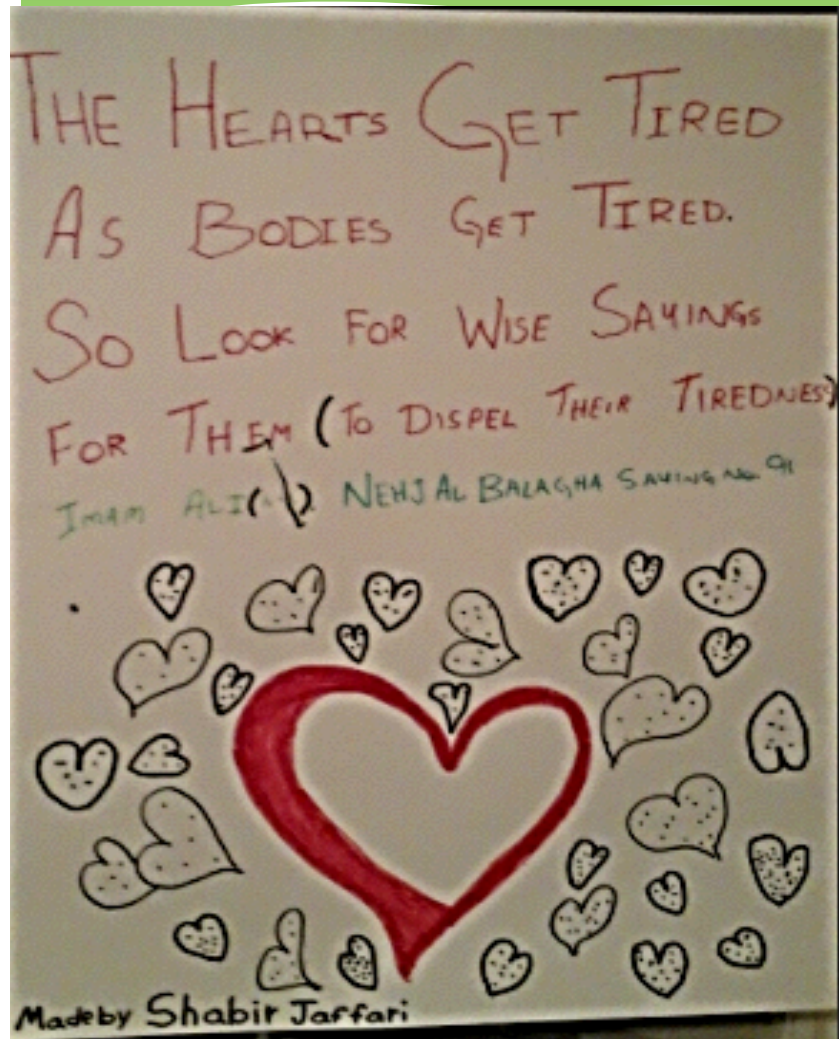 THE HEARTS GET TIRED
AS BODIES GET TIRED.
SO LOOK FOR WISE SAYINGS
FOR THEM (TO DISPEL THEIR TIREDNES)
IMAM ALI NEHJ AL BALAGHA SAYING NO 91
Made by Shabir Jaffari